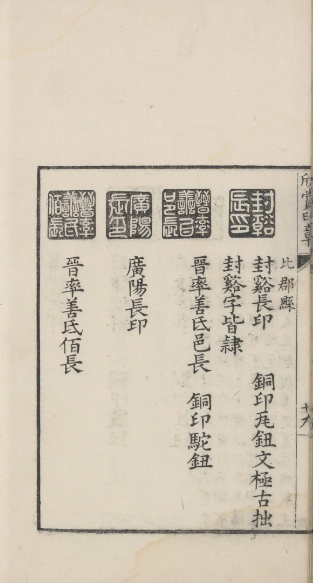 欣賞印章
十九
比郡縣
封谿長印
封谿長印 銅印瓦鈕文極古拙
封谿字皆隸
晉率善氐邑長
晉率善氐邑長 銅印駝鈕
廣陽長印
廣陽長印
晉率善氐佰長
晉率善氐佰長